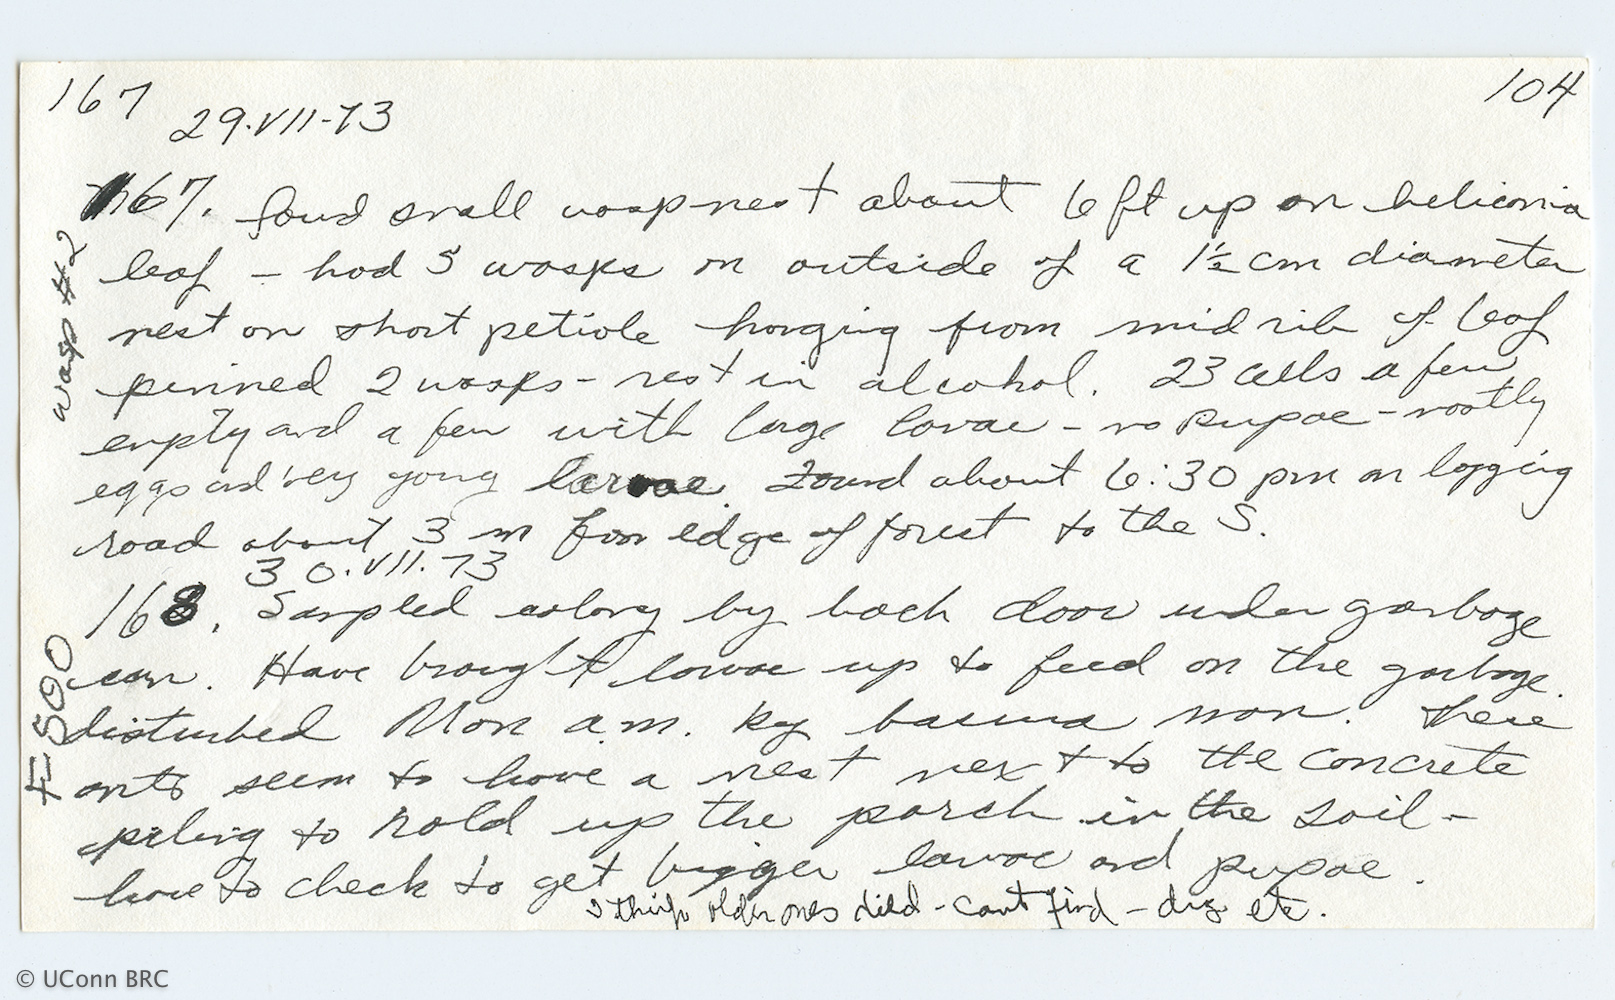 167
104
29.VII-73
167. found small wasp nest about 6 ft up on heliconia
wasp #2
leaf - had 5 wasps on outside of a 1½ cm diameter
nest on short petiole hanging from mid rib of leaf
pinned 2 wasps - rest in alcohol. 23 cells a few
empty and a few with large larvae - no pupae - mostly
eggs and very young larvae. Found about 6:30 pm on logging
road about 3 m from edge of forest to the S.
30.VII.73
168. Sampled colony by back door under garbage
E500
can. Have brought larvae up to feed on the garbage.
disturbed Mon a.m. by man. These
ants seem to have a nest next to the concrete
piling to hold up the porch in the soil -
have to check to get bigger larvae and pupae.
I think older ones died - cant find - dig etc.
© UConn BRC